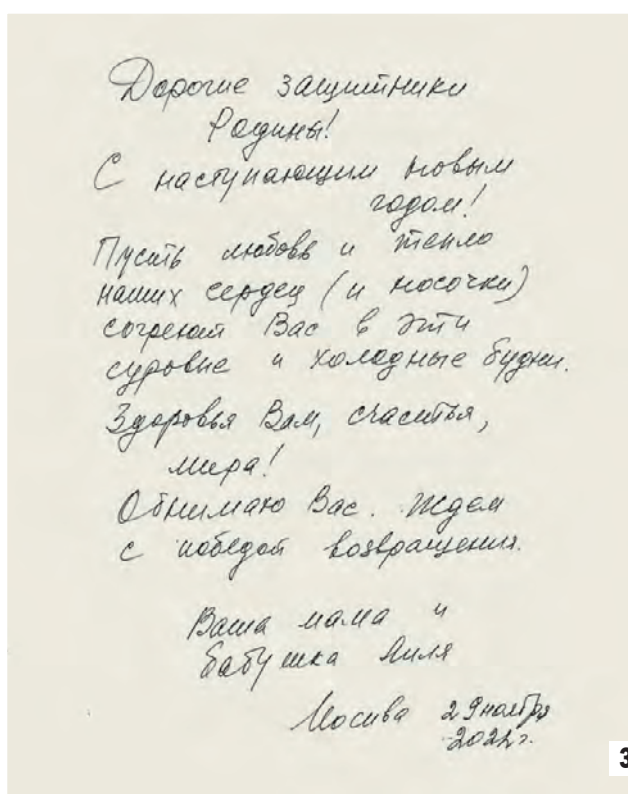 Дорогие защитники
Родины!
С наступающим новым
годом!
Пусть любовь и тепло
наших сердец (и носочки)
согреют Вас в эти
суровые и холодные будни.
Здоровья Вам, счастья,
мира!
Обнимаю Вас. Ждем
с победой возвращения.
Ваша мама и
бабушка Лиля
Москва 29 ноября
2022 г.
3